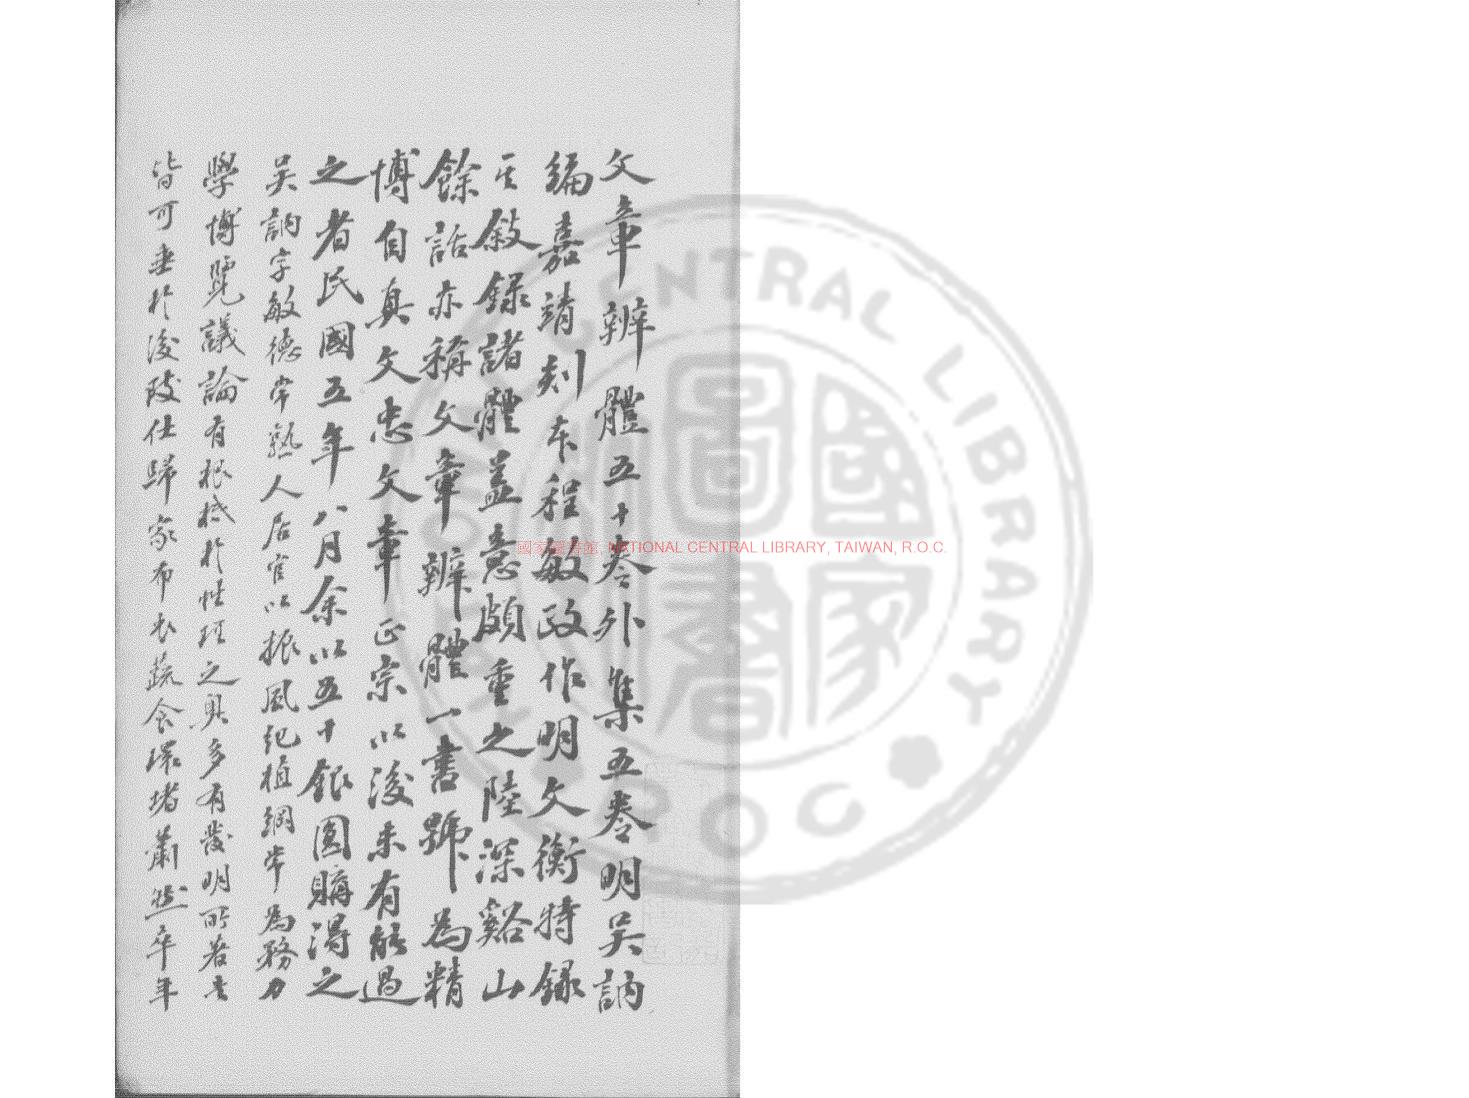 文章辨體五十卷外集五卷明吳訥
編嘉靖刻本程敏政作明文衡特錄
其敍錄諸體蓋意頗重之陸深谿山
餘話亦稱文章辨體一書號為精
博自真文忠文章正宗以後未有能過
之者民國五年八月余以五十銀圓購得之
吳訥字敏德常熟人居官以振風紀植綱常為務力
學博覽議論有根柢於性理之奧多有發明所著書
皆可垂於後致仕歸家布衣蔬食環堵蕭然卒年
國家圖書館, NATIONAL CENTRAL LIBRARY, TAIWAN, R.O.C.
NATIONAL CENTRAL LIBRARY R.O.C
國家圖書